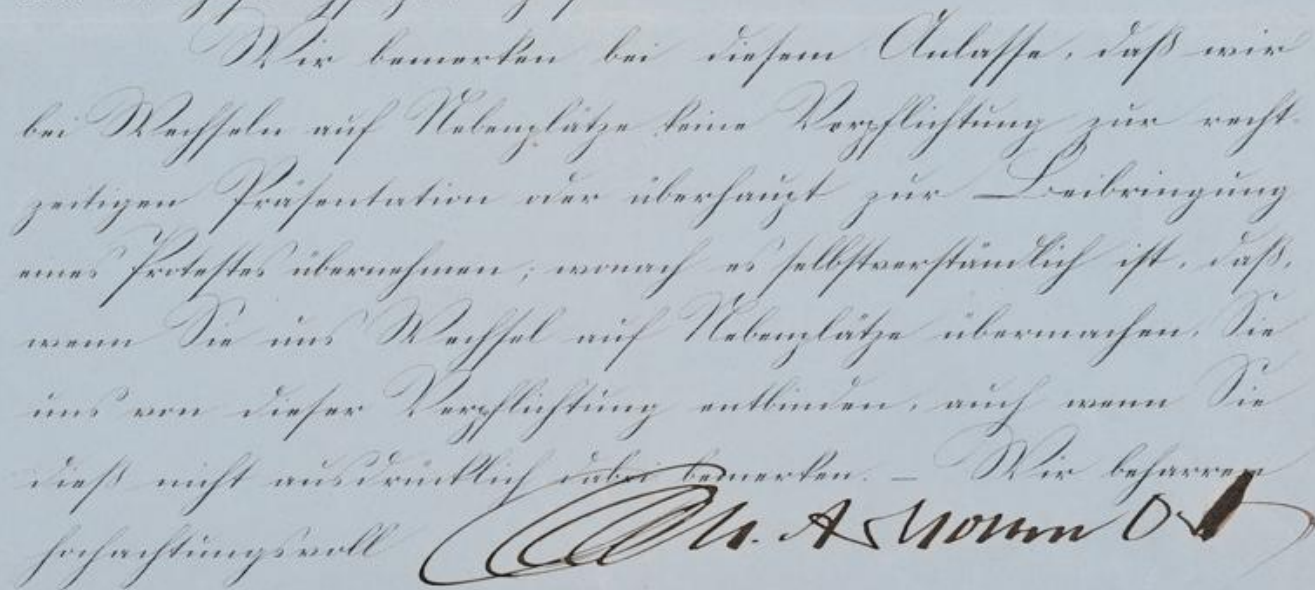 Wir bemerken bei diesem Anlasse, daß wir
bei Wechseln auf Nebenplätze keine Verpflichtung zur recht-
zeitigen Präsentation oder überhaupt zur Beibringung
eines Protestes übernehmen; wonach es selbstverständlich ist, daß,
wenn Sie uns Wechsel auf Nebenplätze übermachen, Sie
uns von dieser Verpflichtung entbinden, auch wenn Sie
dieß nicht ausdrücklich dabei bemerken. – Wir beharren
hochachtungsvoll